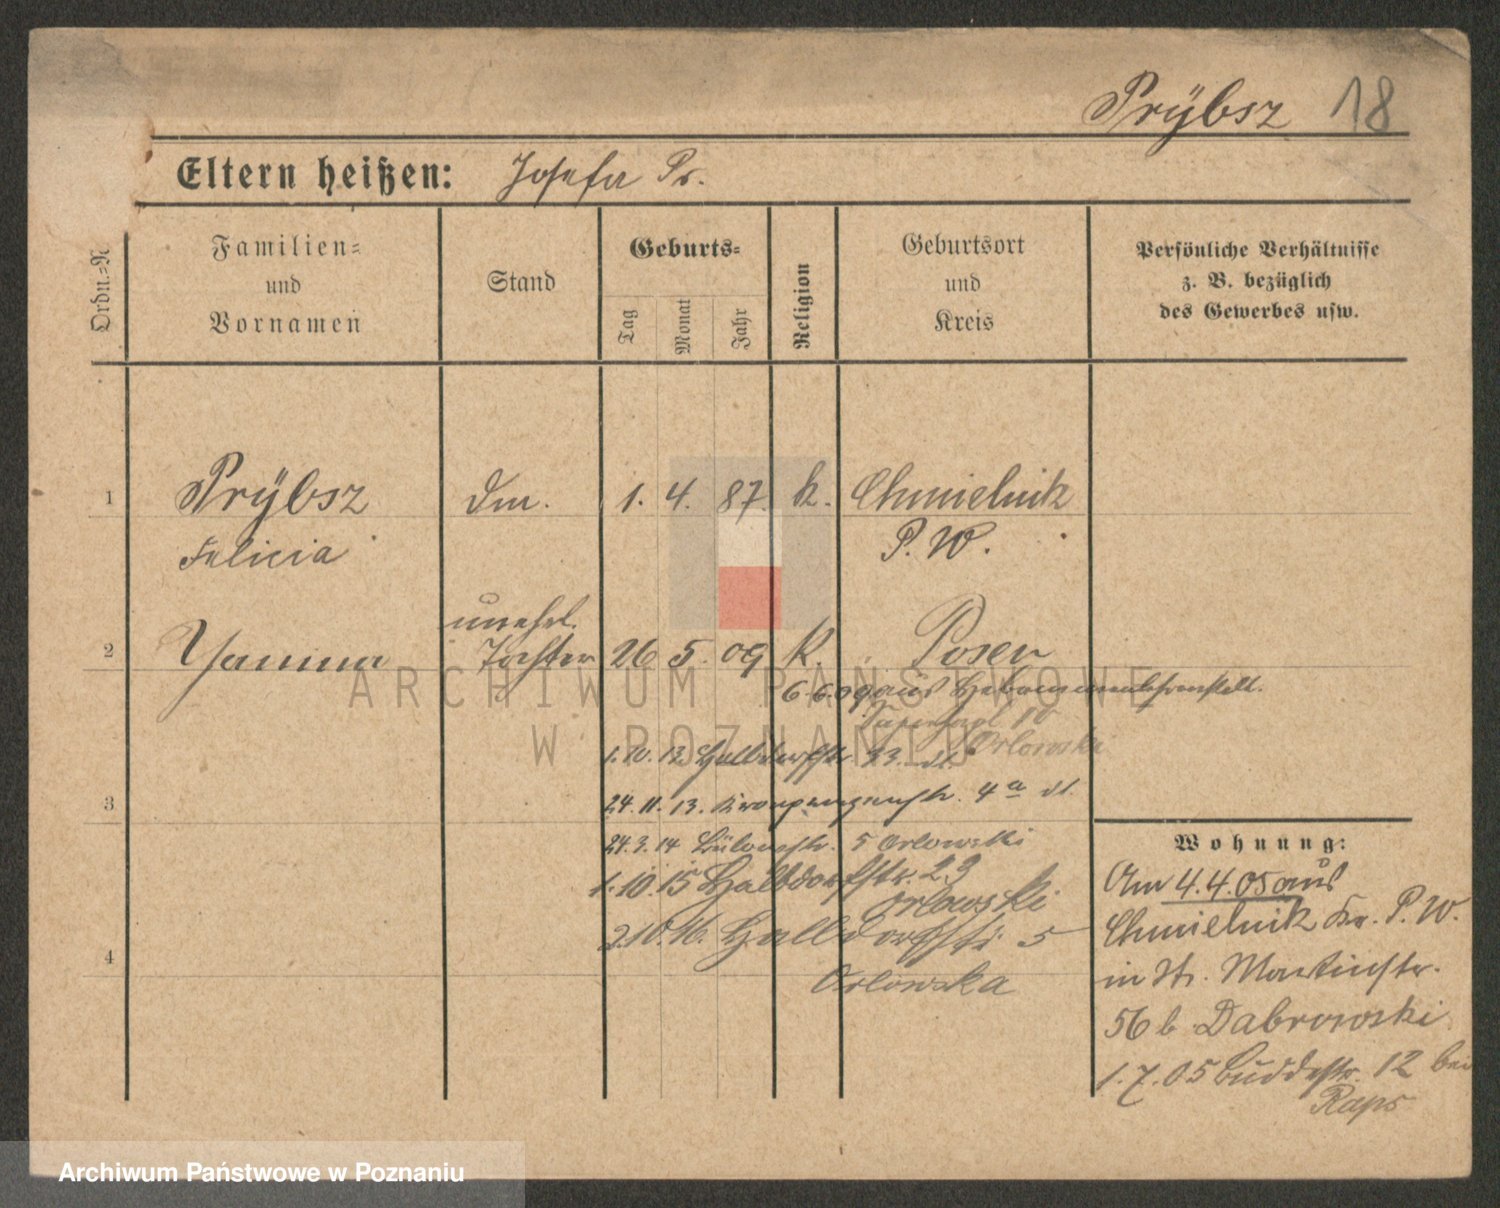 Prÿbsz 18
Eltern heißen: Josefa Pr.
Ordn.-N
Familien-
und
Vornamen
Stand
Geburts-
Tag
Monat
Jahr
Religion
Geburtsort
und
Kreis
Persönliche Verhältnisse
z. B. bezüglich
des Gewerbes usw.
1 Prÿbsz Dm. 1. 4. 87. k. Chmielnik
Felicia P. W.
unehel.
2 Janina Tochter 26 5. 09 K. Posen
6.6.09 aus Hebammenlehranstalt.
10
Orlowski
1.10.13. Halbdorfstr. 23
3 24.11.13. Kronprinzenstr. 4a
24.3.14 Bülowstr. 5 Orlowski
1.10.15 Halbdorfstr. 23
Orlowski
4 2.10.16. Halbdorfstr 5
Orlowska
Wohnung:
Am 4.4.05 aus
Chmielnik Kr. P. W.
in St. Martinstr.
56 b Dabrowski
1.7.05 Buddestr. 12 bei
Raps
ARCHIWUM PAŃSTWOWE
W POZNANIU
Archiwum Państwowe w Poznaniu